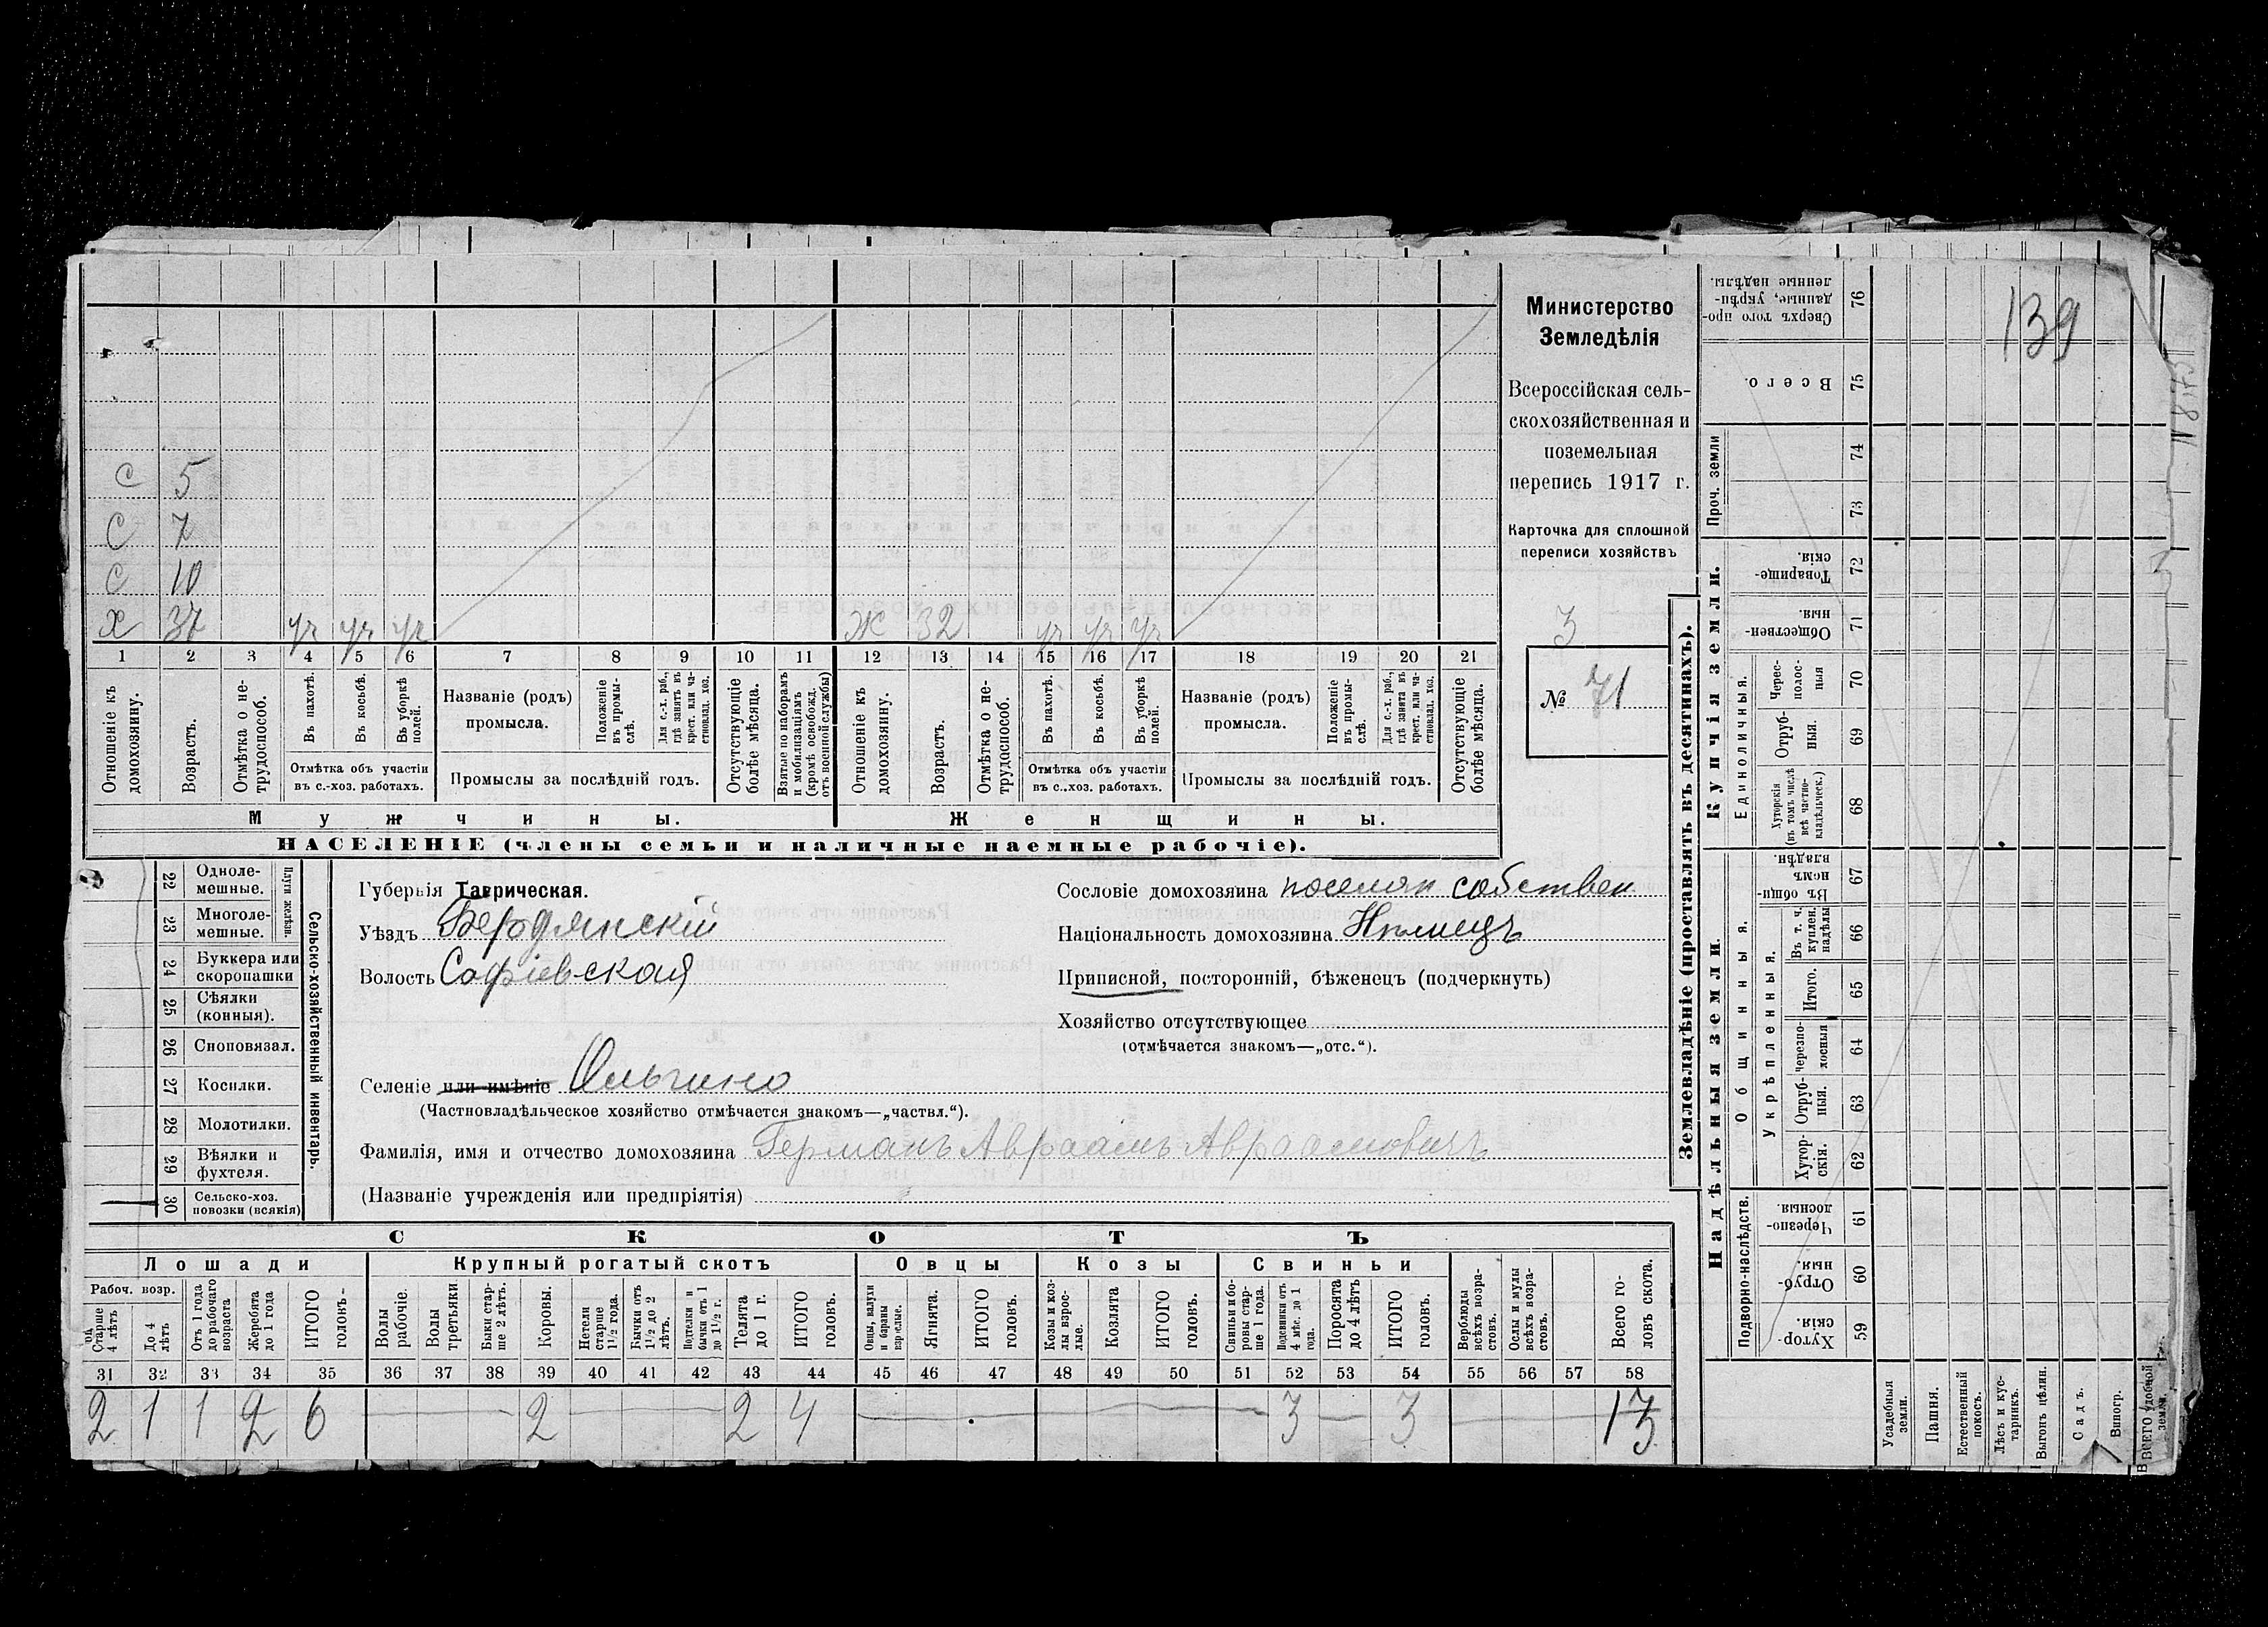 С 5
С 7
С 10
Х 37 уч уч уч Ж 32 уч уч уч
1 2 3 4 5 6 7 8 9 10 11 12 13 14 15 16 17 18 19 20 21
Отношеніе къ домохозяину.
Возрастъ.
Отмѣтка о нетрудоспособ.
Въ пахотѣ.
Въ косьбѣ.
Въ уборкѣ полей.
Отмѣтка объ участіи
въ с.-хоз. работахъ.
Названіе (родъ)
промысла.
Положеніе въ промыслѣ.
Для с.-х. раб., гдѣ занятъ въ крест. или частновлад. хоз.
Промыслы за послѣдній годъ.
Отсутствующіе болѣе мѣсяца.
Взятые по наборамъ и мобилизаціямъ (кромѣ освобожд. отъ военной службы)
Отношеніе къ домохозяину.
Возрастъ.
Отмѣтка о нетрудоспособ.
Въ пахотѣ.
Въ косьбѣ.
Въ уборкѣ полей.
Отмѣтка объ участіи
въ с.-хоз. работахъ.
Названіе (родъ)
промысла.
Положеніе въ промыслѣ.
Для с.-х. раб., гдѣ занята въ крест. или частновлад. хоз.
Промыслы за послѣдній годъ.
Отсутствующіе болѣе мѣсяца.
Мужчины. Женщины.
НАСЕЛЕНІЕ (члены семьи и наличные наемные рабочіе).
Министерство
Земледѣлія
Всероссійская сель-
скохозяйственная и
поземельная
перепись 1917 г.
Карточка для сплошной
переписи хозяйствъ
3
№ 71
22 Однолемешные.
23 Многолемешные.
Плуги желѣзн.
24 Буккера или скоропашки
25 Сѣялки (конныя).
26 Сноповязал.
27 Косилки.
28 Молотилки.
29 Вѣялки и фухтеля.
30 Сельско-хоз. повозки (всякія)
Сельско-хозяйственный инвентарь.
Губернія Таврическая.
Уѣздъ Бердянскій
Волость Софіевская
Сословіе домохозяина поселян собствен
Національность домохозяина Нѣмецъ
Приписной, посторонній, бѣженецъ (подчеркнуть)
Хозяйство отсутствующее
(отмѣчается знакомъ—„отс.“).
Селеніе или имѣніе Ольгино
(Частновладѣльческое хозяйство отмѣчается знакомъ—„частвл.“).
Фамилія, имя и отчество домохозяина Германъ Авраамъ Авраамовичъ
(Названіе учрежденія или предпріятія)
СКОТЪ
Лошади Крупный рогатый скотъ Овцы Козы Свиньи
Рабоч. возр.
Старше 4 лѣтъ
До 4 лѣтъ
Отъ 1 года до рабочаго возраста
Жеребята до 1 года
ИТОГО головъ.
Волы рабочіе.
Волы третьяки
Быки старше 2 лѣтъ.
Коровы.
Нетели старше 1½ года.
Бычки отъ 1½ до 2 лѣтъ.
Подтелки и бычки отъ 1 до 1½ г.
Телята до 1 г.
ИТОГО головъ.
Овцы, валухи и бараны взрослые.
Ягнята.
ИТОГО головъ.
Козы и козлы взрослые.
Козлята
ИТОГО головъ.
Свиньи и боровы старше 1 года.
Подсвинки отъ 4 мѣс. до 1 года.
Поросята до 4 лѣтъ
ИТОГО головъ.
Верблюды всѣхъ возрастовъ.
Ослы и мулы всѣхъ возрастовъ.
Всего головъ скота.
31 32 33 34 35 36 37 38 39 40 41 42 43 44 45 46 47 48 49 50 51 52 53 54 55 56 57 58
2 1 1 2 6 2 2 4 3 3 13
Землевладѣніе (проставлять въ десятинахъ).
Купчія земли.
Надѣльныя земли.
76 Сверхъ того проданные, укрѣпленные надѣлы.
75 Всего.
Проч. земли
74
73
72 Товарищескія.
71 Общественныя.
Единоличныя.
70 Чересполосныя
69 Отрубныя.
68 Хуторскія (въ томъ числѣ всѣ частновладѣльческ.)
Общинныя.
67 Въ общинномъ владѣн.
Укрѣпленныя.
66 Въ т. ч. куплен. надѣлы
65 Итого.
64 Черезполосныя
63 Отрубныя.
62 Хуторскія.
Подворно-наслѣдств.
61 Черезполосныя.
60 Отрубныя.
59 Хуторскія.
Усадебныя земли.
Пашня.
Естественный покосъ.
Лѣсъ и кустарникъ.
Выгонъ цѣлин.
Садъ.
Виногр.
ВСЕГО удобной земли.
139